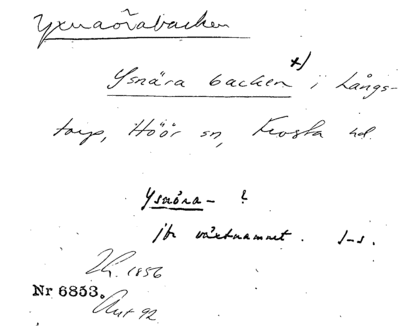 Yxnaõrabacken
Ysnära backen x) i Långs-
torp, Höör sn, Frosta hd.
Ysnöra- ?
jfr växtnamnet. J-s.
1856
Nr 6853.
92